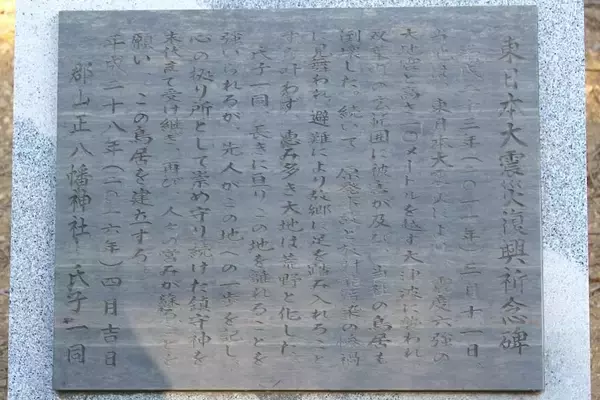 東日本大震災復興祈念碑
三年(二〇一一年)三月十一日、
当地は、東日本大震災により、震度六強の
大地震と高さ二〇メートルを越す大津波に襲われ
双葉町の広範囲に被害が及び、当社の鳥居も
倒壊した。続いて、原発事故と放射能汚染の惨禍
に見舞われ、避難により故郷に足を踏み入れること
すら叶わず、恵み多き大地は荒野と化した。
氏子一同、長きに亘りこの地を離れることを
強いられるが、先人がこの地への一歩を記し、
心の拠り所として崇め守り続けた鎮守神を
末代まで受け継ぎ、再び、人々の営みが蘇ることを
願い、この鳥居を建立する。
平成二十八年(二〇一六年)四月吉日
郡山正八幡神社 氏子一同